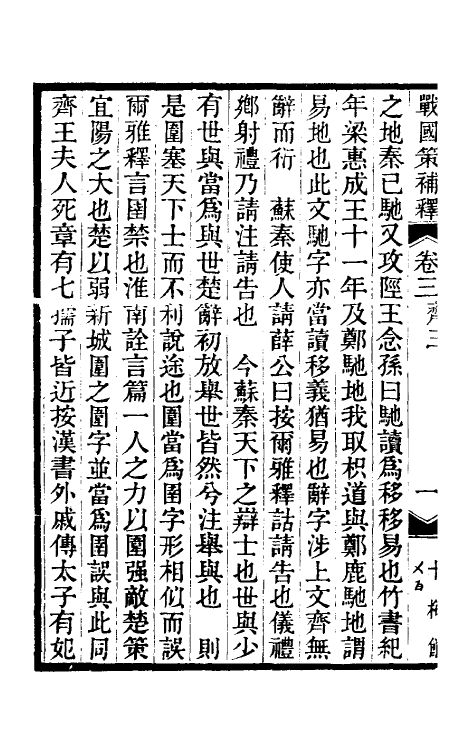 戰國策補釋 卷三 齊三 一
之地秦已馳又攻陘王念孫曰馳讀爲移移易也竹書紀
年梁惠成王十一年及鄭馳地我取枳道與鄭鹿馳地謂
易地也此文馳字亦當讀移義猶易也辭字涉上文齊無
辭而衍　蘇秦使人請薛公曰按爾雅釋詁請告也儀禮
鄉射禮乃請注請告也　今蘇秦天下之辯士也世與少
有世與當爲與世楚辭初放舉世皆然兮注舉與也　則
是圍塞天下士而不利說途也圍當爲圉字形相似而誤
爾雅釋言圉禁也淮南詮言篇一人之力以圉强敵楚策
宜陽之大也楚以弱新城圍之圍字並當爲圉誤與此同
齊王夫人死章有七孺子皆近按漢書外戚傳太子有妃